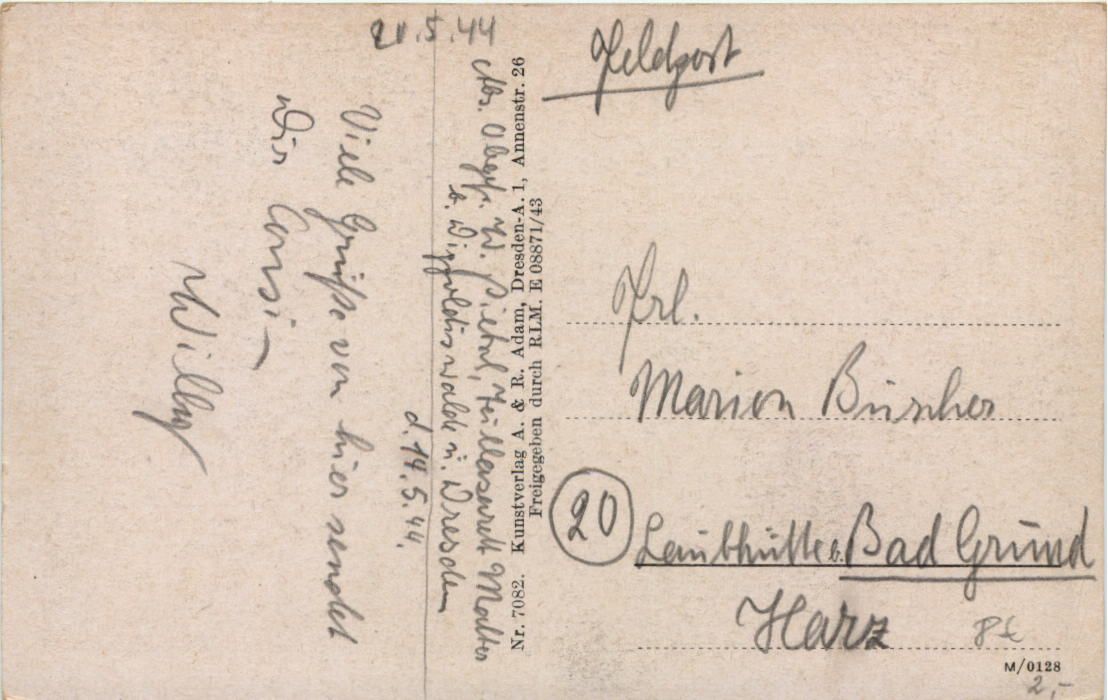 20.5.44
Feldpost
Abs. Obgefr. W. Pietal, Teillazarett Malter
b. Dippoldiswalde ü. Dresden
d. 14.5.44.
Viele Grüße von hier sendet
Dir
Willy
Nr. 7082. Kunstverlag A. & R. Adam, Dresden-A. 1, Annenstr. 26
Freigegeben durch RLM. E 08871/43
Frl.
Marion Büscher
20
Laubhütte b. Bad Grund
Harz
M/0128
2,-